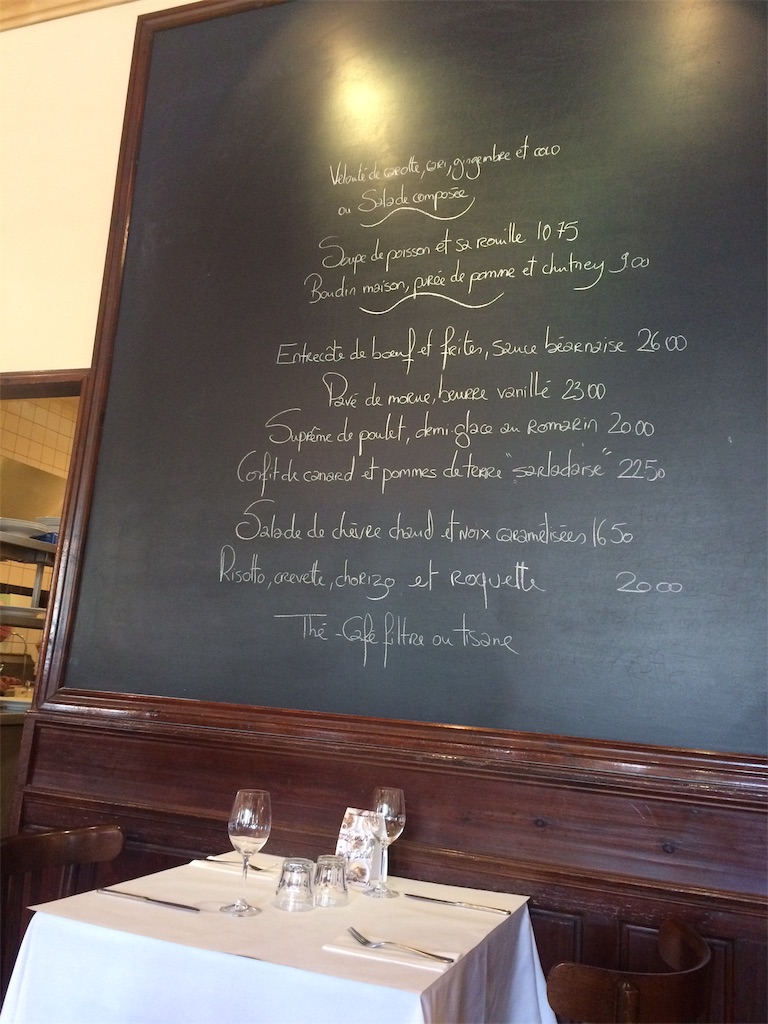 Velouté de carotte, cari, gingembre et coco
ou Salade composée
Soupe de poisson et sa rouille 10 75
Boudin maison, purée de pomme et chutney 9 00
Entrecôte de boeuf et frites, sauce béarnaise 26 00
Pavé de morue, beurre vanillé 23 00
Suprême de poulet, demi-glace au Romarin 20 00
Confit de canard et pommes de terre "sarladaise" 22 50
Salade de chèvre chaud et Noix caramélisées 16 50
Risotto, crevette, chorizo et Roquette 20 00
Thé - Café filtre ou tisane